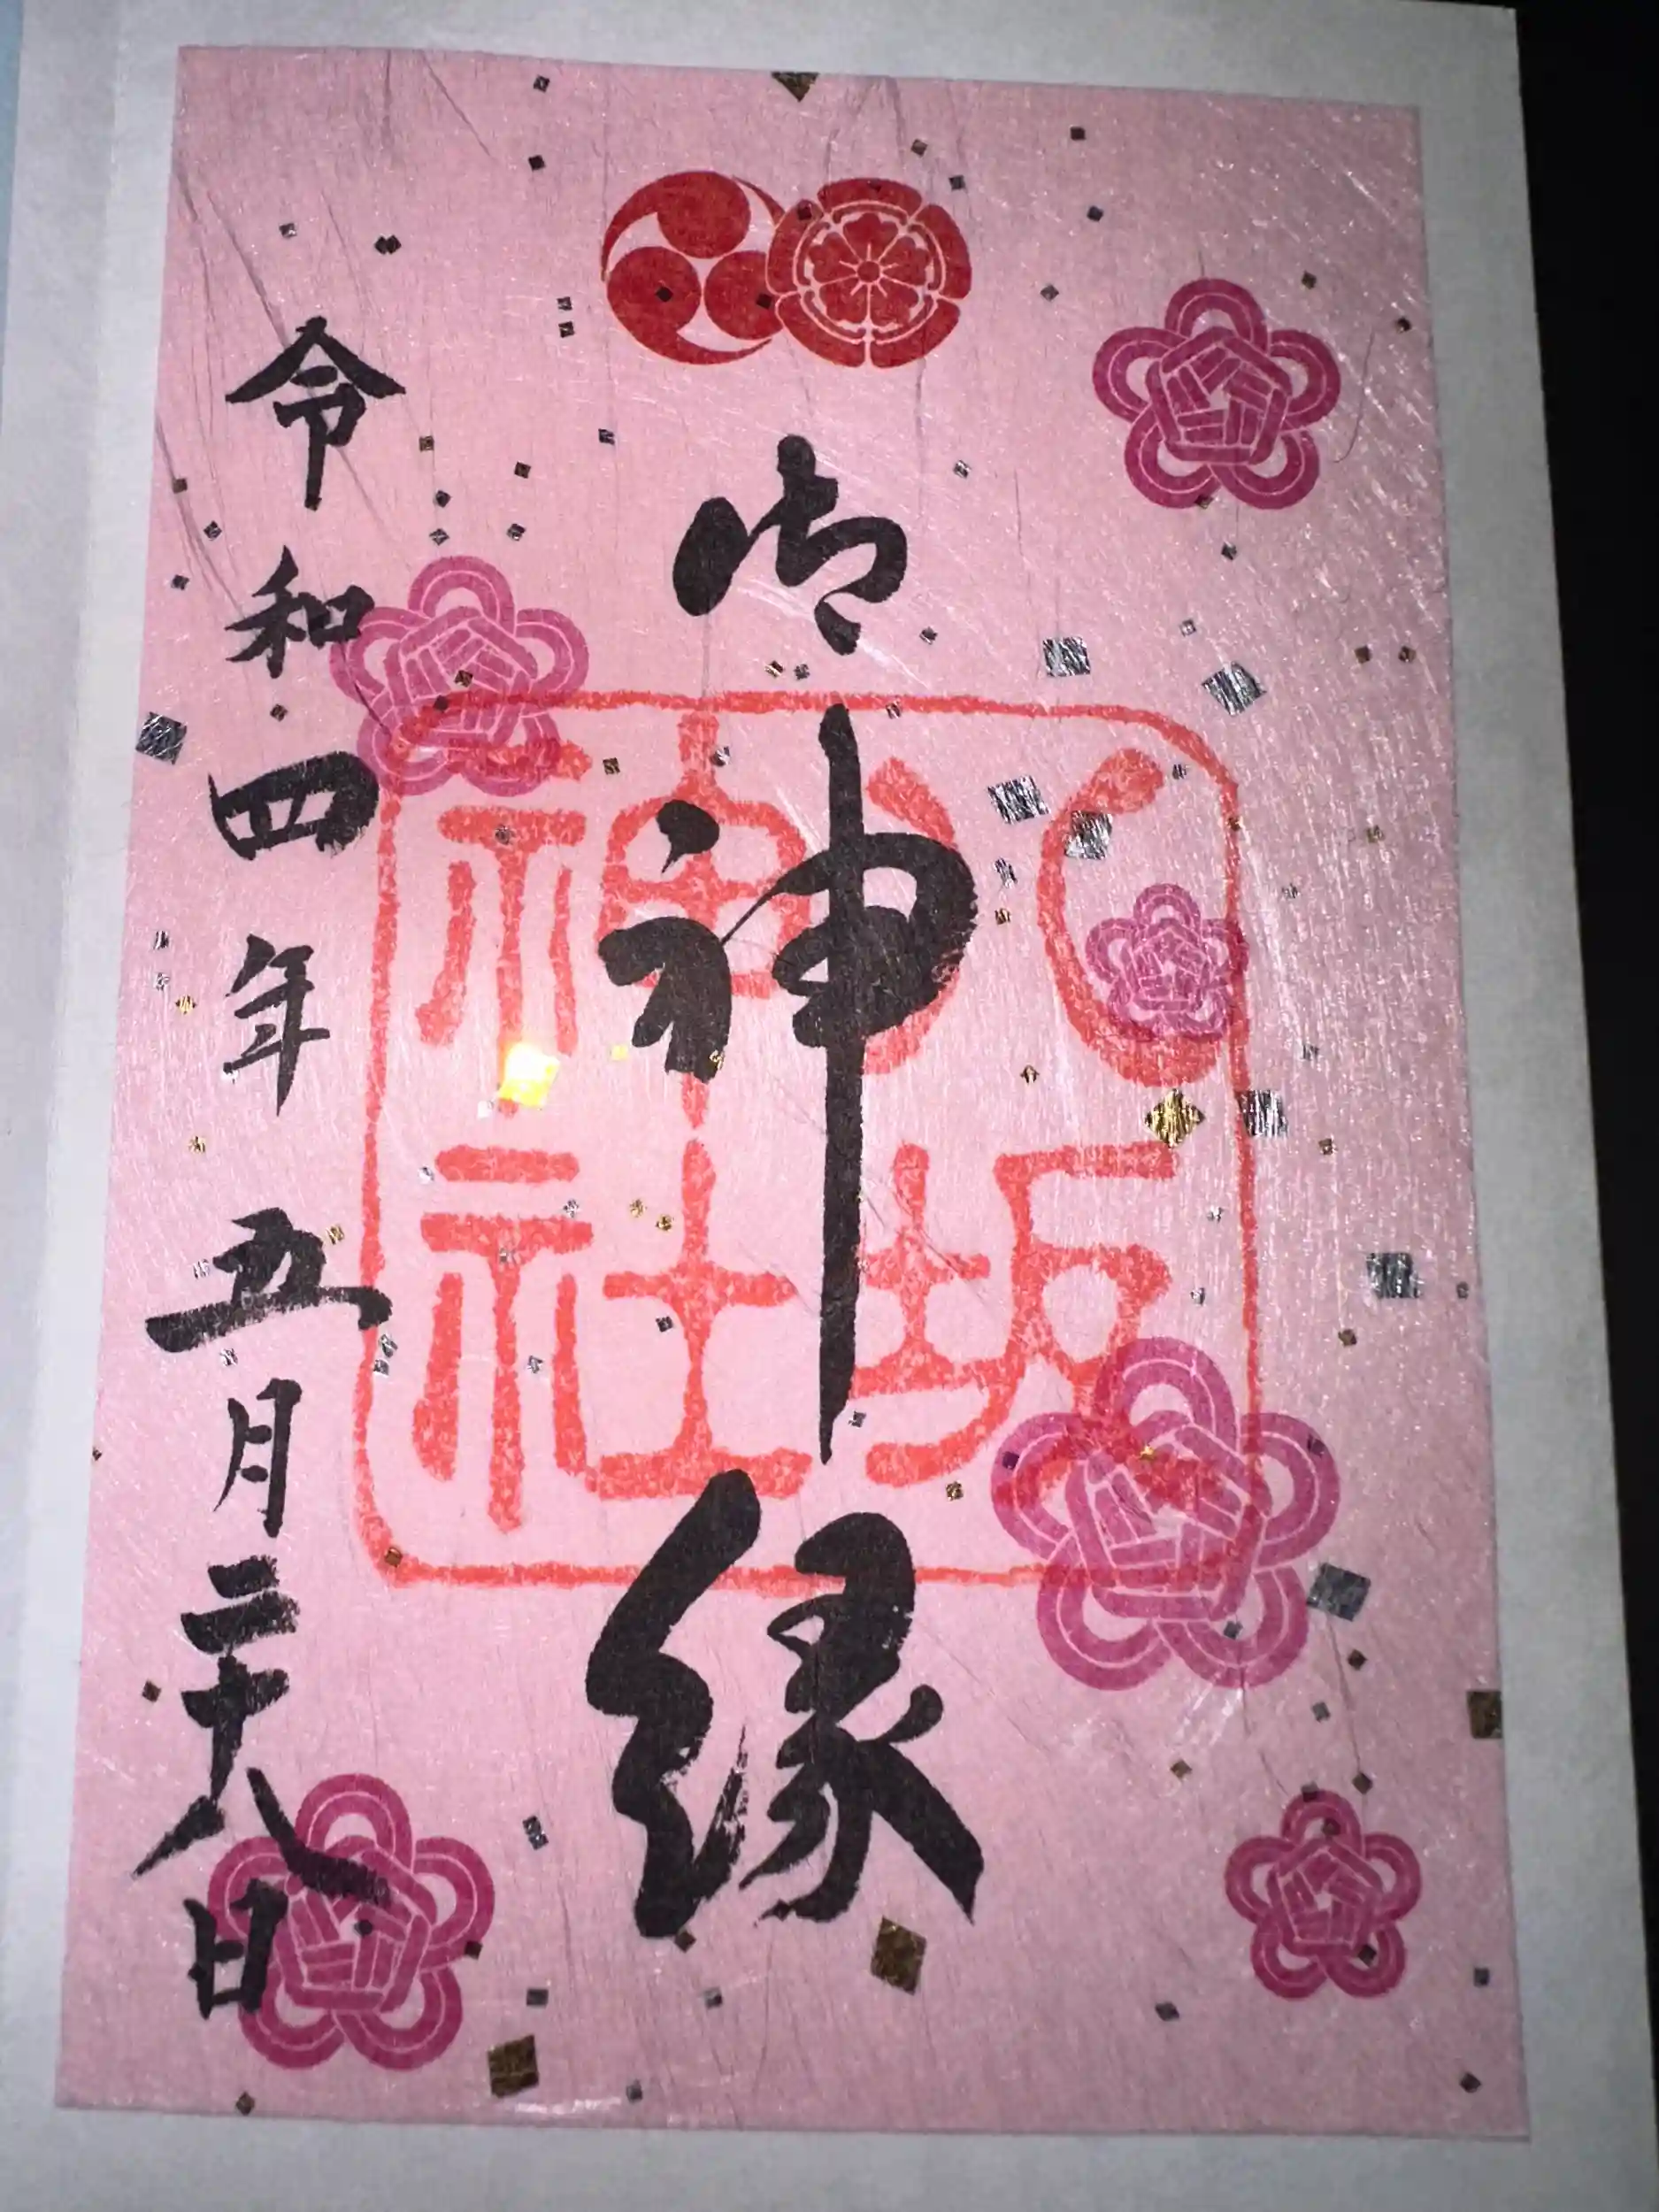 御神縁
八坂神社
令和四年五月二十八日